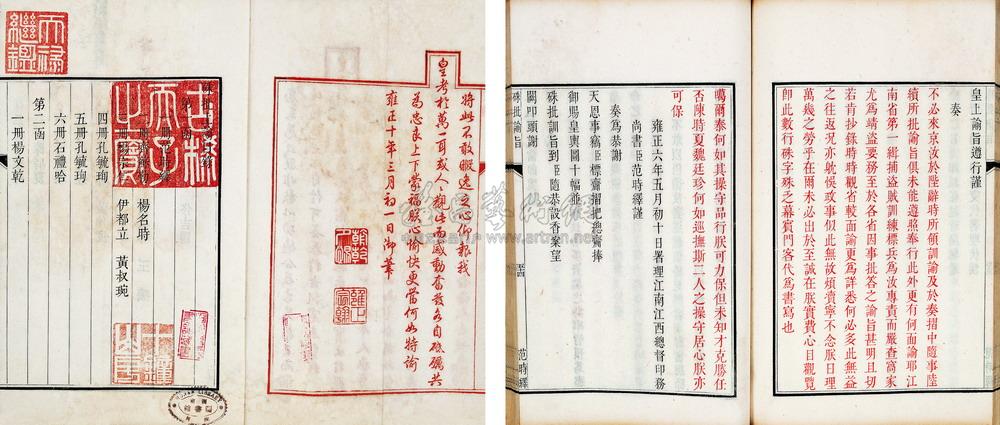 將此不敢暇逸之心仰報我
皇考於萬一耳或人人觀此而感動奮發各自砥礪共
為忠良上下蒙福朕心愉快更當何如特諭
雍正十年三月初一日御筆
朝乾夕惕
雍正宸翰
天祿繼鑑
古稀天子之寶
楊名時
伊都立 黃叔琬
四冊孔毓珣
五冊孔毓珣
六冊石禮哈
第二函
一冊楊文乾
皇上諭旨遵行謹
奏
不必來京汝於陛辭時所領訓諭及於奏摺中隨事陸
續所批諭旨俱未能遵照奉行此外更有何面諭耶江
南省第一緝捕盜賊訓練標兵爲汝專責而嚴查窩家
尤爲靖盜要務至於各省因事批答之諭旨甚明且切
若肯抄錄時時觀省較面諭更爲詳悉何必多此無益
之往返況亦耽悞攻事似此無故煩瀆寧不念朕日理
萬幾之勞乎在爾未必出於至誠在朕實費心目觀覽
即此數行硃字殊乏幕賓門客代爲書寫也
噶爾泰何如其操守品行朕可力保但未知才克勝任
否陳時夏魏廷珍何如巡撫斯二人之操守居心朕亦
可保
雍正六年五月初十日署理江南江西總督印務
尚書臣范時繹謹
奏爲恭謝
天恩事竊臣標齎摺把總齎捧
御賜皇輿圖十幅並
硃批訓旨到臣隨恭設香案望
闕叩頭謝
硃批諭旨
范時繹